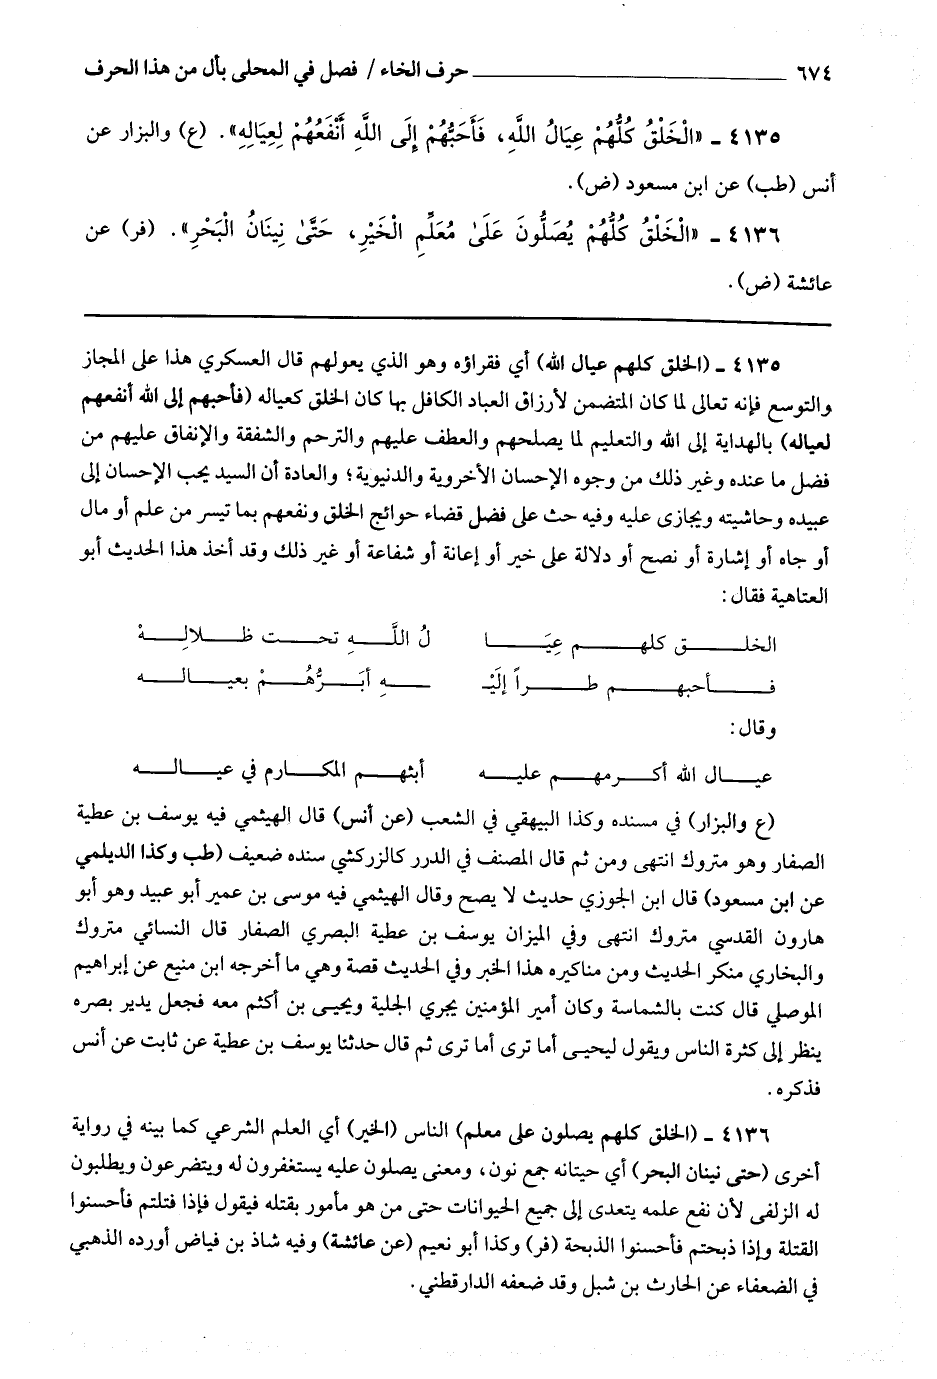 ٦٧٤ ــــــــــ حرف الخاء / فصل في المحلى بأل من هذا الحرف
٤١٣٥ ـ «الْخَلْقُ كُلُّهُمْ عِيَالُ اللَّهِ، فَأَحَبُّهُمْ إِلَى اللَّهِ أَنْفَعُهُمْ لِعِيَالِهِ». (ع) والبزار عن
أنس (طب) عن ابن مسعود (ض).
٤١٣٦ ـ «الْخَلْقُ كُلُّهُمْ يُصَلُّونَ عَلَىٰ مُعَلِّمِ الْخَيْرِ، حَتَّىٰ نِينَانُ الْبَحْرِ». (فر) عن
عائشة (ض).
٤١٣٥ ـ (الخلق كلهم عيال الله) أي فقراؤه وهو الذي يعولهم قال العسكري هذا على المجاز
والتوسع فإنه تعالى لما كان المتضمن لأرزاق العباد الكافل بها كان الخلق كعياله (فأحبهم إلى الله أنفعهم
لعياله) بالهداية إلى الله والتعليم لما يصلحهم والعطف عليهم والترحم والشفقة والإنفاق عليهم من
فضل ما عنده وغير ذلك من وجوه الإحسان الأخروية والدنيوية؛ والعادة أن السيد يحب الإحسان إلى
عبيده وحاشيته ويجازى عليه وفيه حث على فضل قضاء حوائج الخلق ونفعهم بما تيسر من علم أو مال
أو جاه أو إشارة أو نصح أو دلالة على خير أو إعانة أو شفاعة أو غير ذلك وقد أخذ هذا الحديث أبو
العتاهية فقال:
الخلـــق كلهـــم عِيَـــا لُ اللَّـــهِ تحـــت ظـــلالِهْ
فـــأحبهـــم طـــراً إلَيْـ ـــهِ أبَـــرُّهُـــمْ بعيـــالـــه
وقال:
عيـــال الله أكـــرمهـــم عليـــه أبثهـــم المكـــارم في عيـــالـــه
(ع والبزار) في مسنده وكذا البيهقي في الشعب (عن أنس) قال الهيثمي فيه يوسف بن عطية
الصفار وهو متروك انتهى ومن ثم قال المصنف في الدرر كالزركشي سنده ضعيف (طب وكذا الديلمي
عن ابن مسعود) قال ابن الجوزي حديث لا يصح وقال الهيثمي فيه موسى بن عمير أبو عبيد وهو أبو
هارون القدسي متروك انتهى وفي الميزان يوسف بن عطية البصري الصفار قال النسائي متروك
والبخاري منكر الحديث ومن مناكيره هذا الخبر وفي الحديث قصة وهي ما أخرجه ابن منيع عن إبراهيم
الموصلي قال كنت بالشماسة وكان أمير المؤمنين يجري الجلية ويحيى بن أكثم معه فجعل يدير بصره
ينظر إلى كثرة الناس ويقول ليحيى أما ترى أما ترى ثم قال حدثنا يوسف بن عطية عن ثابت عن أنس
فذكره.
٤١٣٦ ـ (الخلق كلهم يصلون على معلم) الناس (الخير) أي العلم الشرعي كما بينه في رواية
أخرى (حتى نينان البحر) أي حيتانه جمع نون، ومعنى يصلون عليه يستغفرون له ويتضرعون ويطلبون
له الزلفى لأن نفع علمه يتعدى إلى جميع الحيوانات حتى من هو مأمور بقتله فيقول فإذا قتلتم فأحسنوا
القتلة وإذا ذبحتم فأحسنوا الذبحة (فر) وكذا أبو نعيم (عن عائشة) وفيه شاذ بن فياض أورده الذهبي
في الضعفاء عن الحارث بن شبل وقد ضعفه الدارقطني.